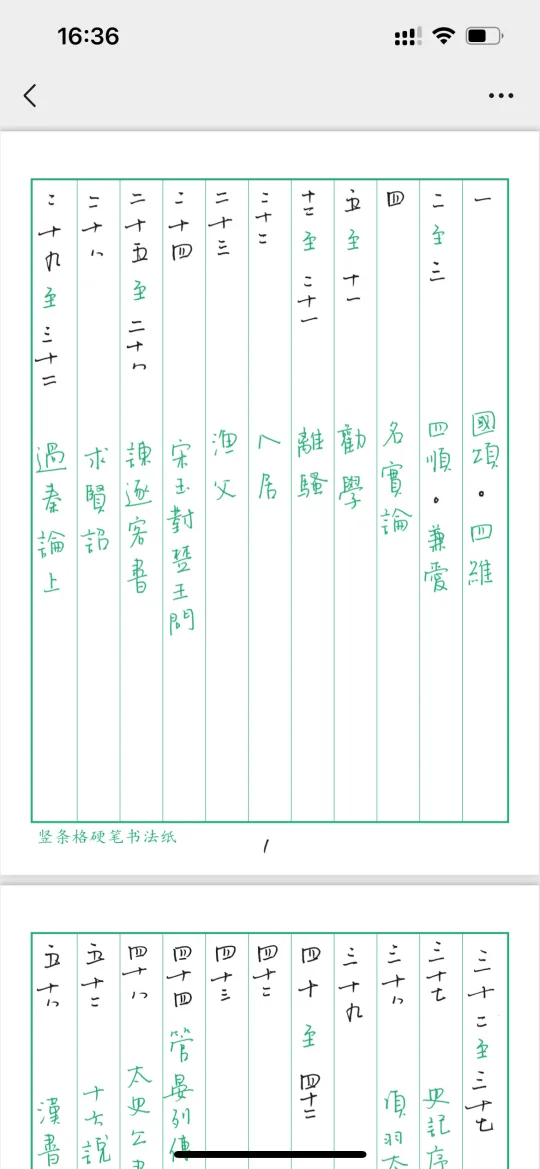 16:36
一 國頌。四維
二至三 四順。兼愛
四 名實論
五至十一 勸學
十二至二十一 離騷
二十二 卜居
二十三 漁父
二十四 宋玉對楚王問
二十五至二十八 諫逐客書
二十八 求賢詔
二十九至三十二 過秦論上
竖条格硬笔书法纸
1
三十二至三十七
三十七 史記序
三十八 項羽
三十九
四十至四十二
四十二
四十三
四十四 管晏列傳
四十八 太史公
五十二 十七說
五十八 漢書